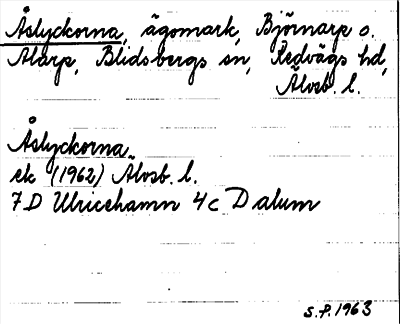 Åslyckorna, ägomark, Björnarp o.
Alarp, Blidsbergs sn, Redvägs hd,
Älvsb. l.
Åslyckorna
ek (1962) Älvsb. l.
7D Ulricehamn 4c Dalum
S.F. 1963